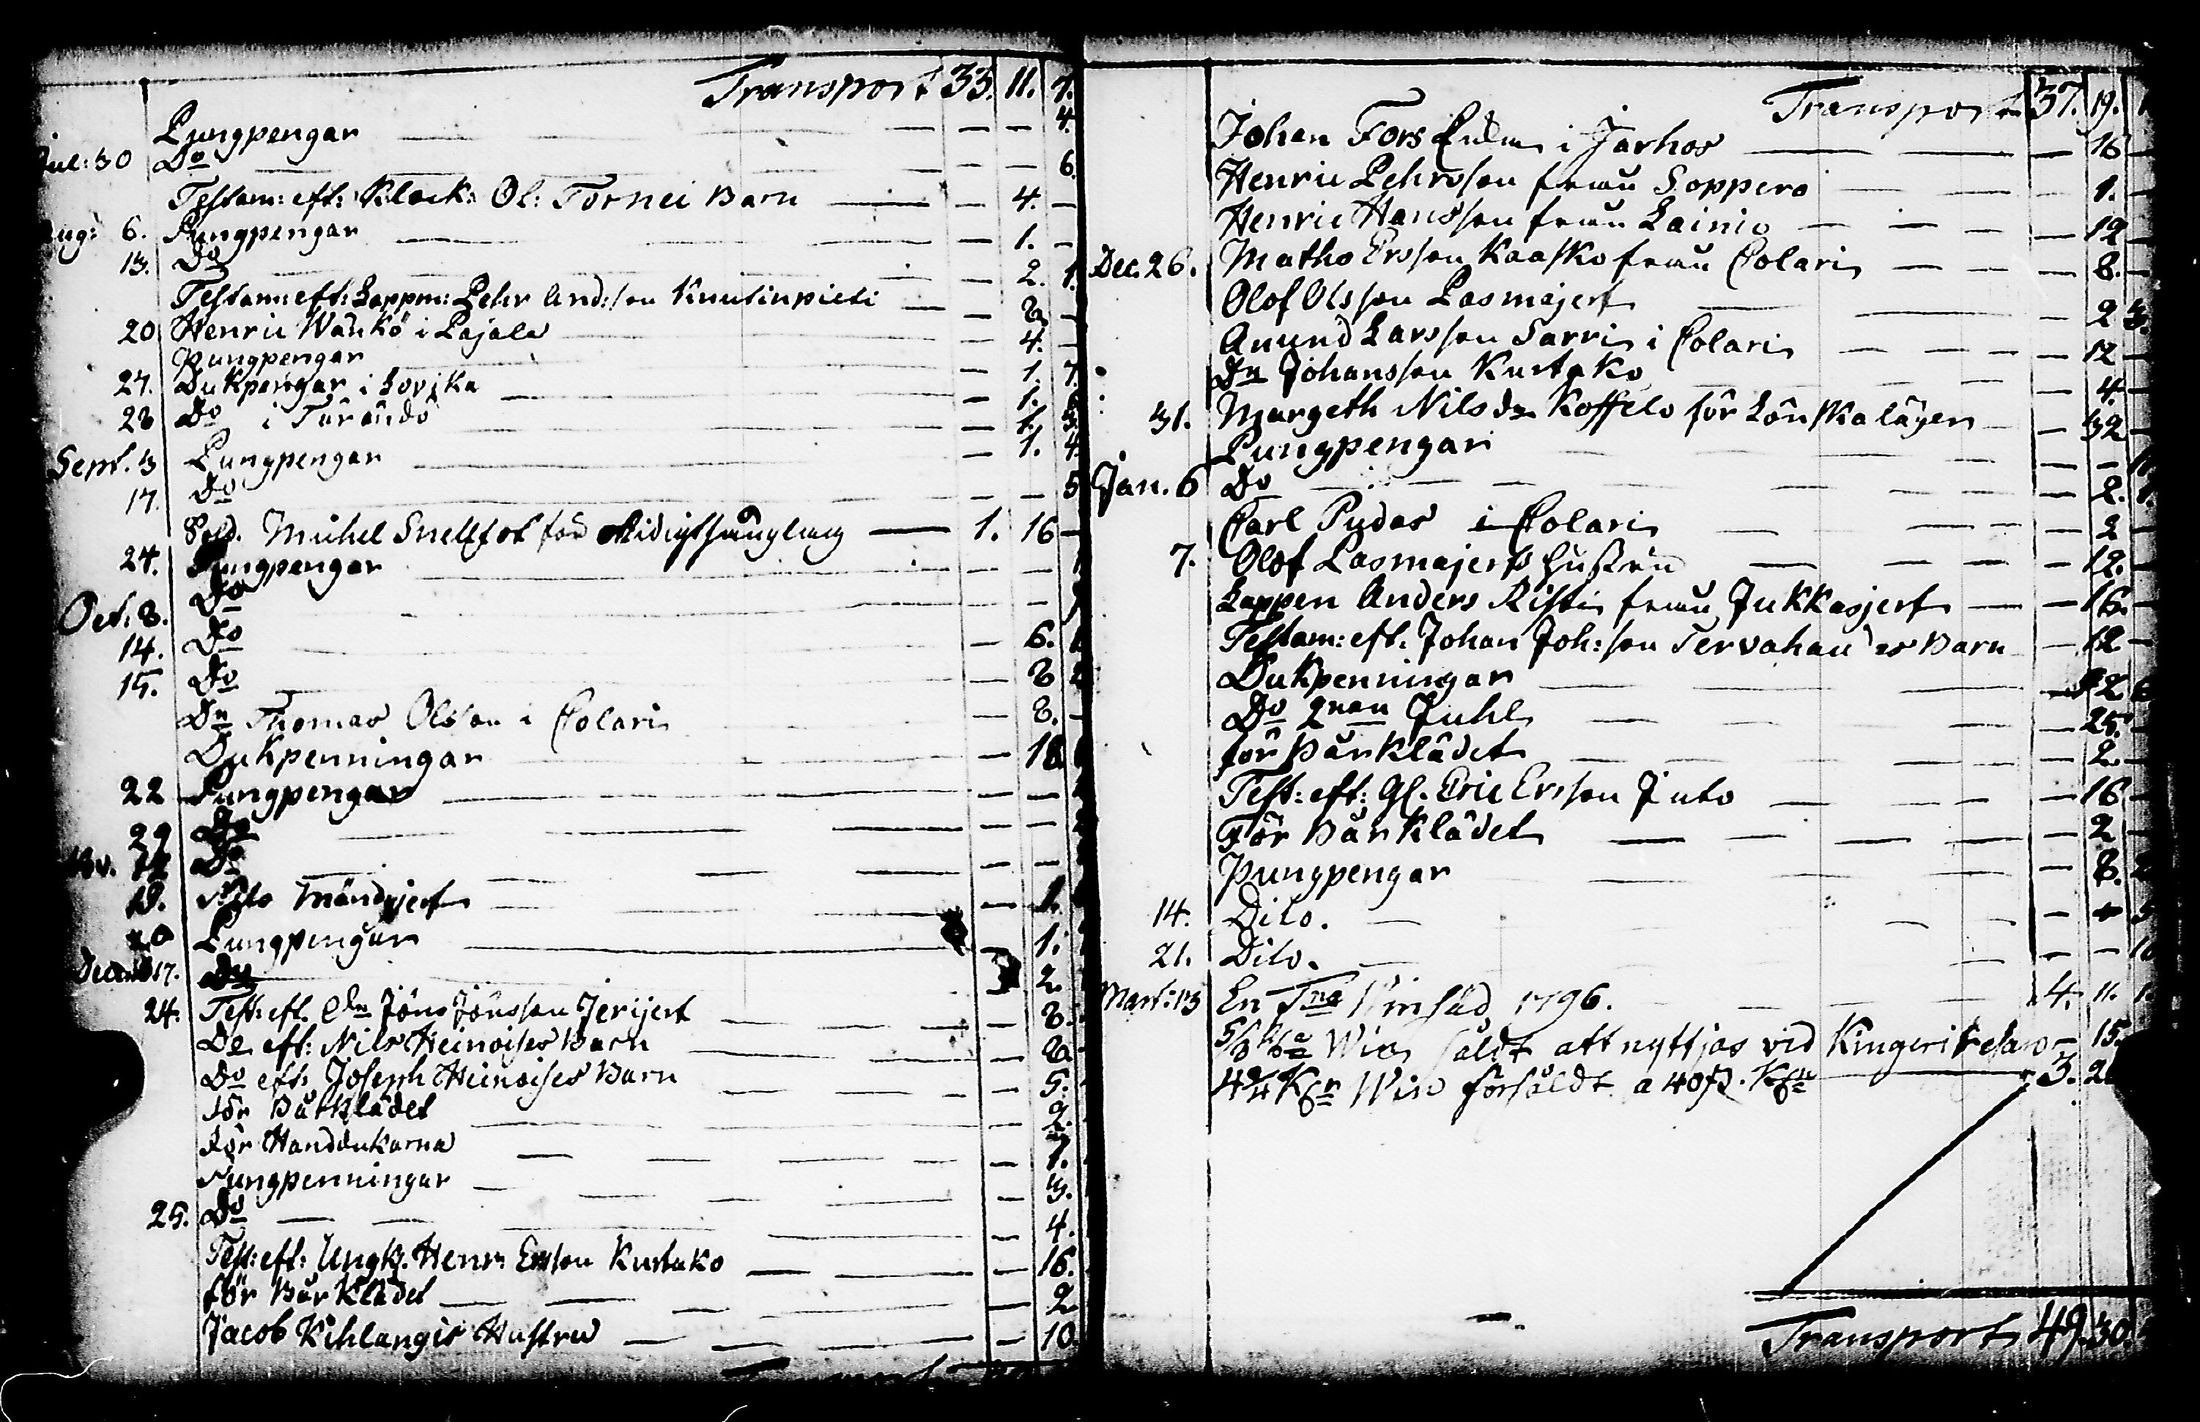 Transport 33. 11. 7.
Pungpengar — — — 4.
Jul: 30 Do — — 6.
Testam: eft: Klock: Ol: Tornei Barn — — 4. —
Aug: 6. Pungpengar — — 1. —
13. Do — 2. 1.
Testam: eft: Lappm: Pehr And:sson Knutinpieti — — 8. —
20 Henric Wänkö i Pajala — 4. —
Pungpengar — 1. 7.
27. Dukpengar i Lovika — 1.
28 Do i Turändö — 1. 3.
Sept. 3 Pungpengar — 1. 4.
17. Do — — 5
Sold. Michel Snellfot för — 1. 16 —
24. Pungpengar — —
Oct. 8. Do — —
14. Do — 6.
15. Do — 8
Dn Thomas Olsson i Colari — 8. —
Dukpenningar — 18
22 Pungpengar — —
29 Do — —
Nov. 12 Do — —
19. Nils Mändojerf — 1.
20 Pungpengar — 1.
Decemb 17. Do 2.
24. Test: eft. Jöns Jönsson Jerijerf — 8.
Do eft: Nils Heinoises Barn — 8.
Do eft: Joseph Heinoises Barn — 5.
För Bårklädet — 2.
För Handdukarna — 1.
Pungpenningar — 3.
25. Do — 4.
Test: eft: Ungk. Henr: Ersson Kurtako — 16.
för Bårklädet — 2
Jacob Kihlangis Hustru — 10
Transport 37. 19.
Johan Fors i Jarhos — 16 —
Henric Pehrsson från Soppero — 1. —
Henric Hansson från Lainio — 12 —
Dec. 26. Matho Ersson Kaasko från Colari — 8. —
Olof Olsson Pasmajerf — 2 3.
Amund Larsson Sarri i Colari — 12 —
Dn Johansson Kurtako — 4 —
31. Margeth Nilsdr Koffelo för Lönskalägen — 32 —
Pungpengar — — 11.
Jan. 6 Do — 2. 1.
Carl Pudas i Colari — 2 —
7. Olof Pasmajerfs hustru — 12. —
Lappen Anders Risti från Jukkasjerf — 16. —
Testam: eft. Johan Joh:son Tervahau's Barn — 12 —
Dukpenningar — 2
Do Juhl — 25. —
för Bårklädet — 2. —
Test: eft: Gl. Eric Ersson Juto — 16 —
För Bårklädet — 2 —
Pungpengar — 8. 2
14. Dito. — — 5
21. Dito. — — 10
Mart: 13 En Tna Winsäd 1796. 4. 11. 1.
Win såldt att nyttjas vid Kingeri — 15.
Win försåldt a 40 — 3. 2
Transport 49. 30.